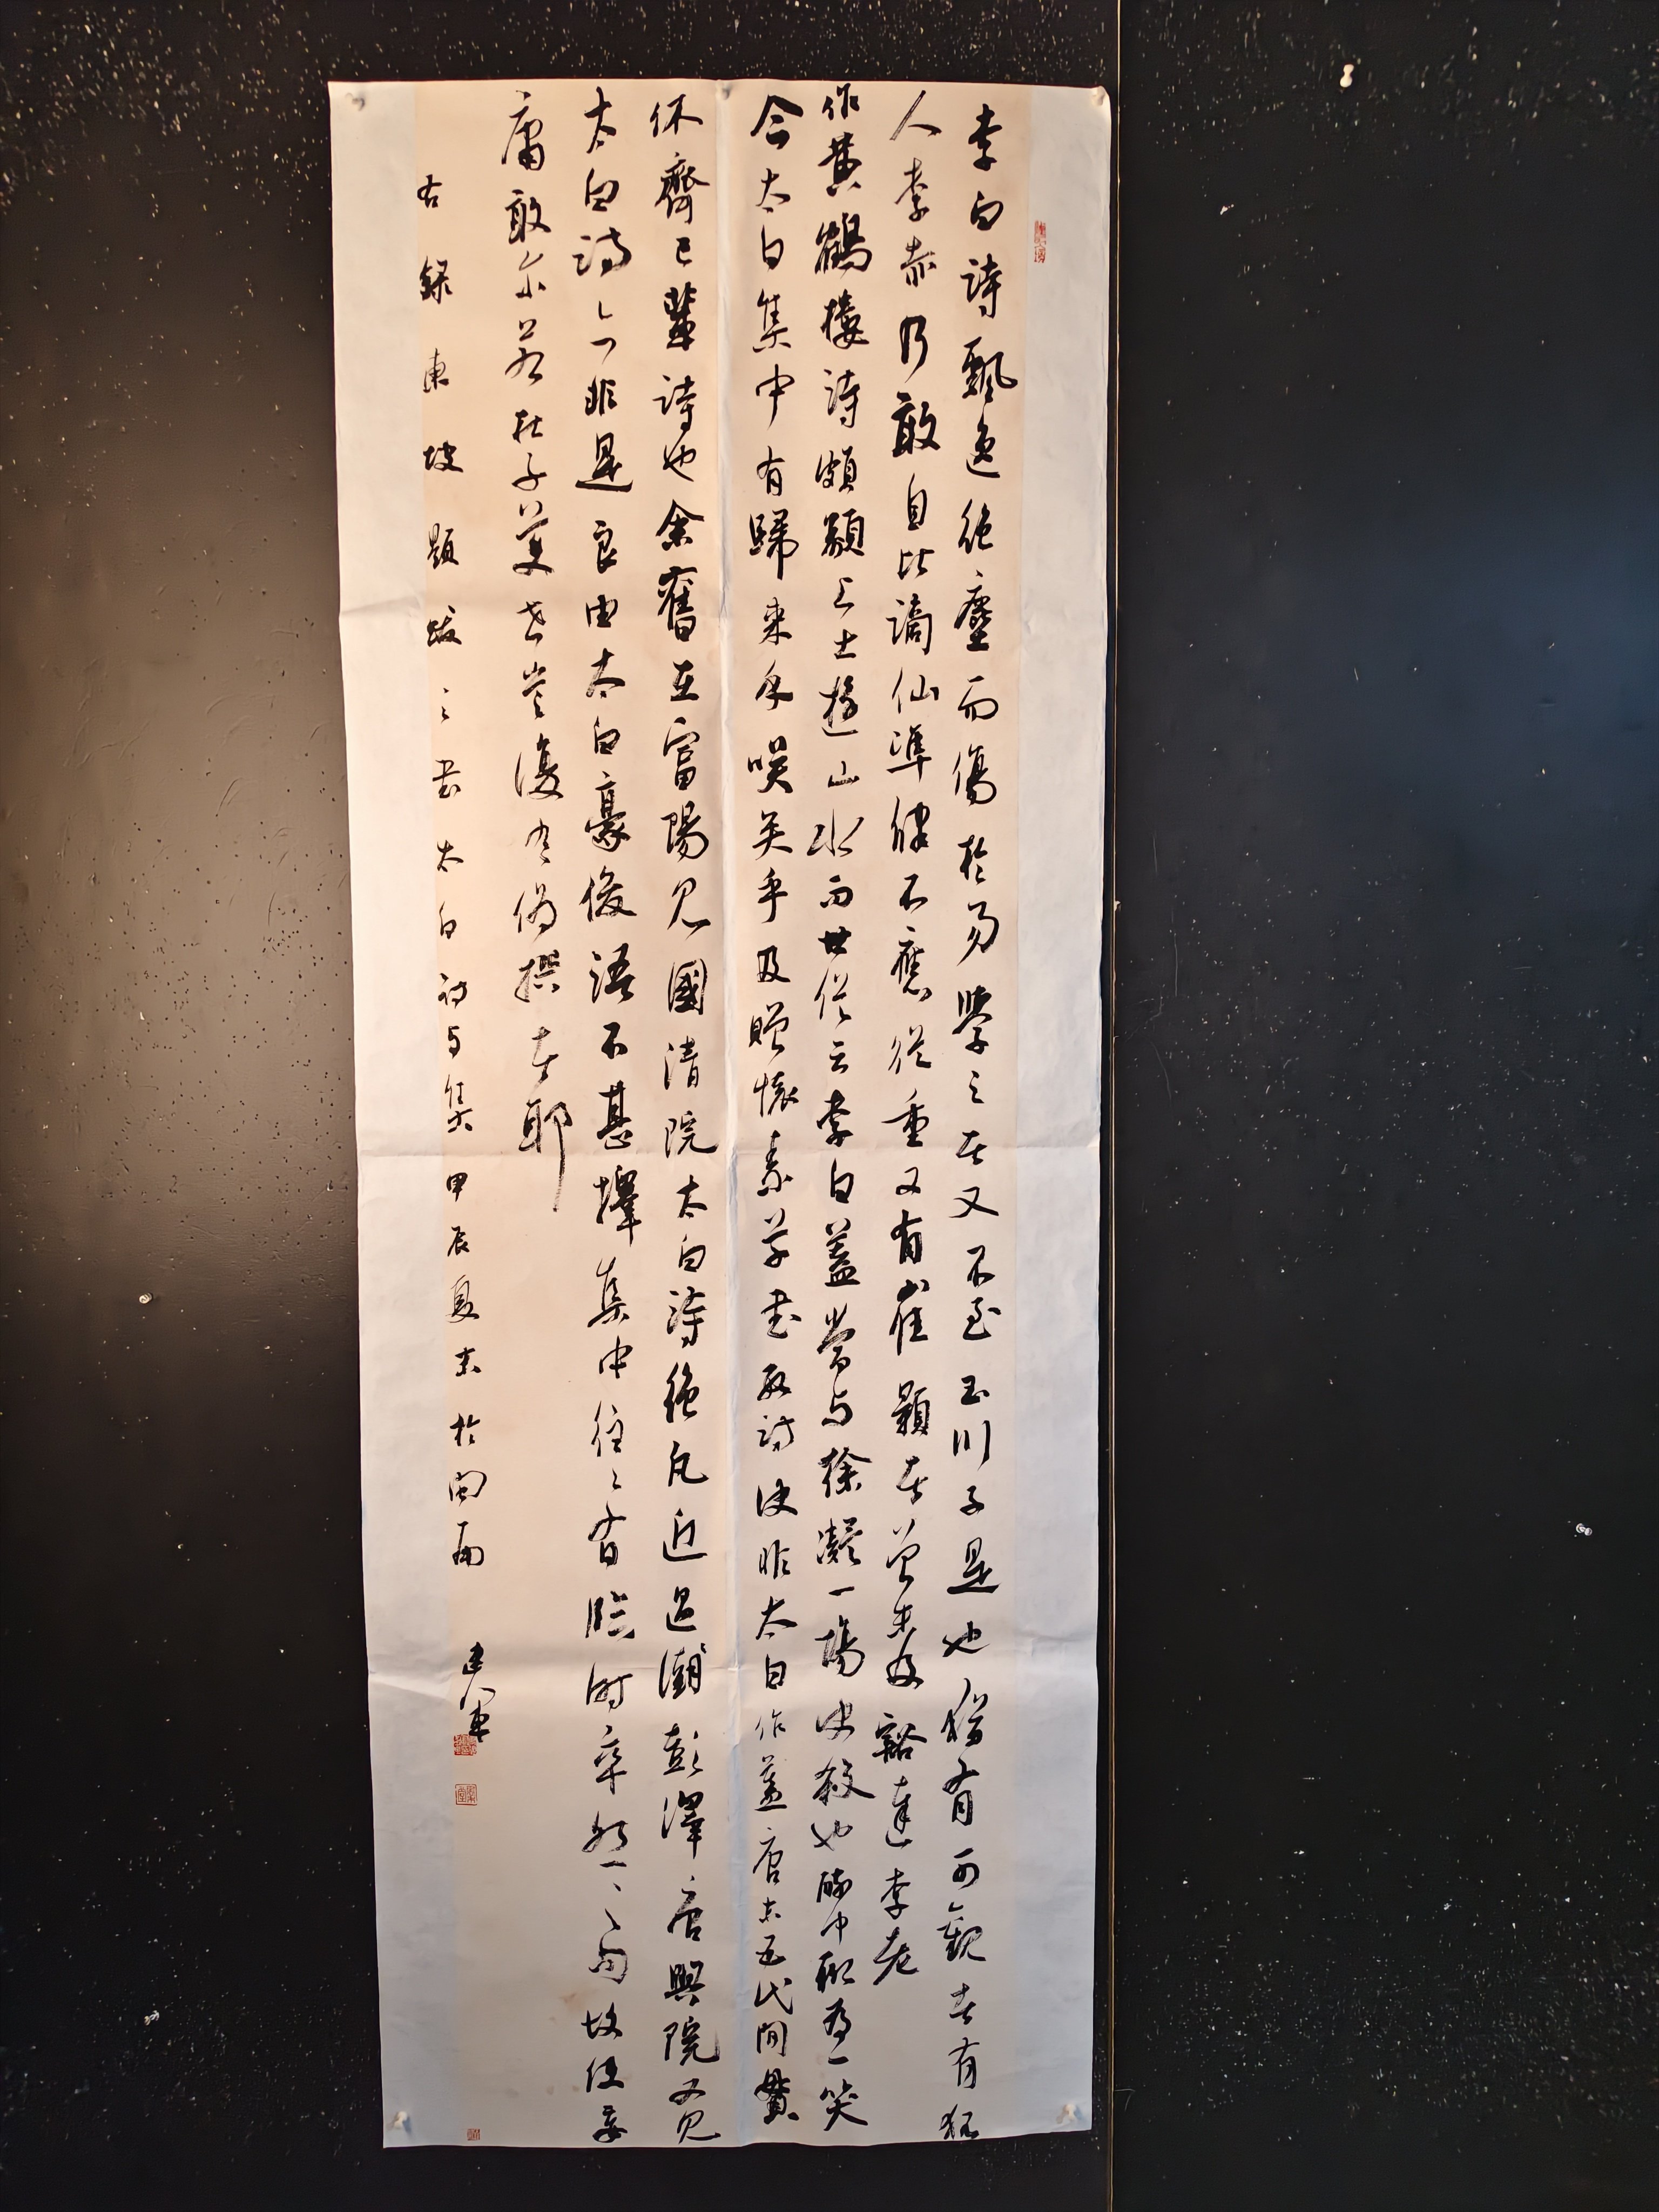 李白詩飄逸絕塵而傷於易學之者又不至玉川子是也猶有可觀者有狂
人李赤乃敢自比謫仙準律不應從重又有崔顥者曾未及豁達李老
作黃鶴樓詩頗類上士遊山水而世俗云李白蓋當与徐凝一場決殺也醉中聊為一笑
今太白集中有歸來乎咲矣乎及贈懷素草書數詩決非太白作蓋唐末五代間貫
休齊己輩詩也余舊在富陽見國清院太白詩絕凡近過彭澤唐興院又見
太白詩亦非是良由太白豪俊語不甚擇集中往々有臨時率然之句故使妄
庸敢尔若杜子美世豈復有偽撰者耶
右錄東坡題跋之書太白詩与集甲辰夏末於閩南 建軍